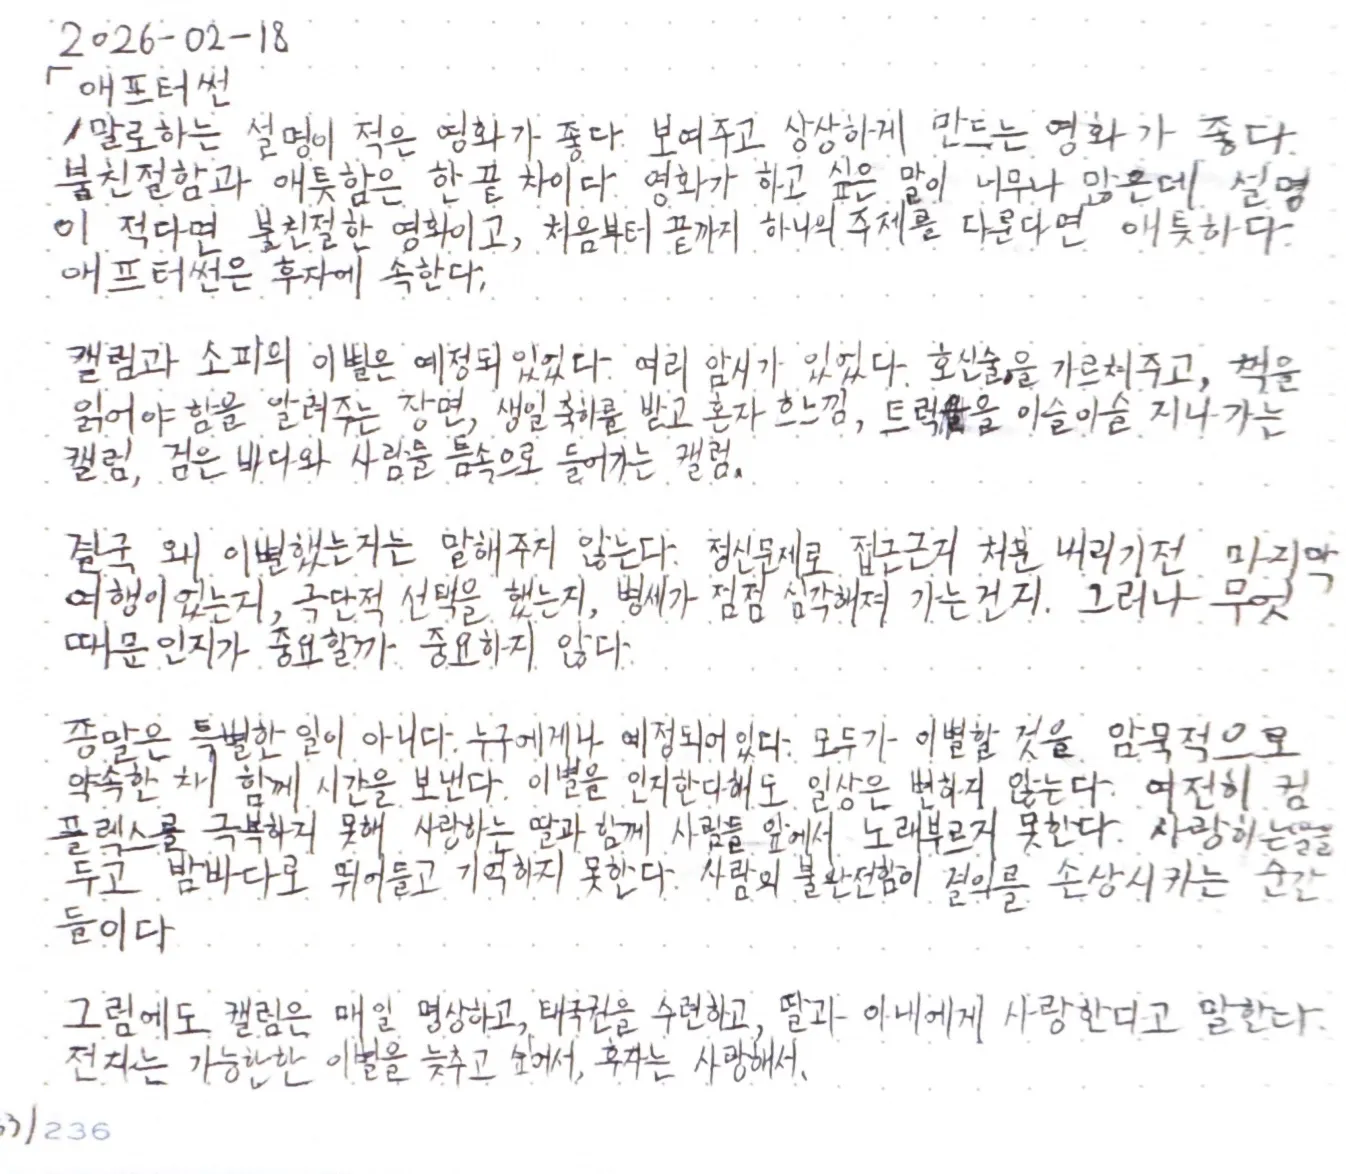 2026-02-18
「애프터썬
말로하는 설명이 적은 영화가 좋다. 보여주고 상상하게 만드는 영화가 좋다.
불친절함과 애틋함은 한 끝 차이다. 영화가 하고 싶은 말이 너무나 많은데 설명
이 적다면 불친절한 영화이고, 처음부터 끝까지 하나의 주제를 다룬다면 애틋하다.
애프터썬은 후자에 속한다.
캘럼과 소피의 이별은 예정되 있었다. 여러 암시가 있었다. 호신술을 가르쳐주고, 책을
읽어야 함을 알려주는 장면, 생일 축하를 받고 혼자 흐느낌, 트럭을 이슬아슬 지나가는
캘럼, 검은 바다와 사람들 틈속으로 들어가는 캘럼.
결국 왜 이별했는지는 말해주지 않는다. 정신문제로 접근금지 처분 내리기전 마지막
여행이었는지, 극단적 선택을 했는지, 병세가 점점 심각해져 가는건지. 그러나 무엇
때문인지가 중요할까. 중요하지 않다.
종말은 특별한 일이 아니다. 누구에게나 예정되어있다. 모두가 이별할 것을 암묵적으로
약속한 채 함께 시간을 보낸다. 이별을 인지한다해도 일상은 변하지 않는다. 여전히 컴
플렉스를 극복하지 못해 사랑하는 딸과 함께 사람들 앞에서 노래부르지 못한다. 사랑하는 딸을
두고 밤바다로 뛰어들고 기억하지 못한다. 사람의 불완전함이 결의를 손상시키는 순간
들이다
그럼에도 캘럼은 매일 명상하고, 태극권을 수련하고, 딸과 아내에게 사랑한다고 말한다.
전자는 가능한한 이별을 늦추고 싶어서, 후자는 사랑해서.
/236